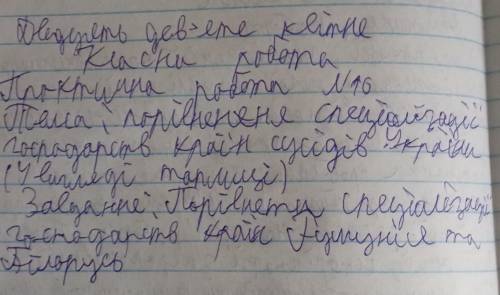 Двадцять дев'яте квітне
Класна робота
Практична робота №6
Тема: порівненя спеціалізації
господарств країн сусідів України
(У вигляді таблиці)
Завдання: Порівнети спеціалізації
господарств країн Румунія та
Білорусь